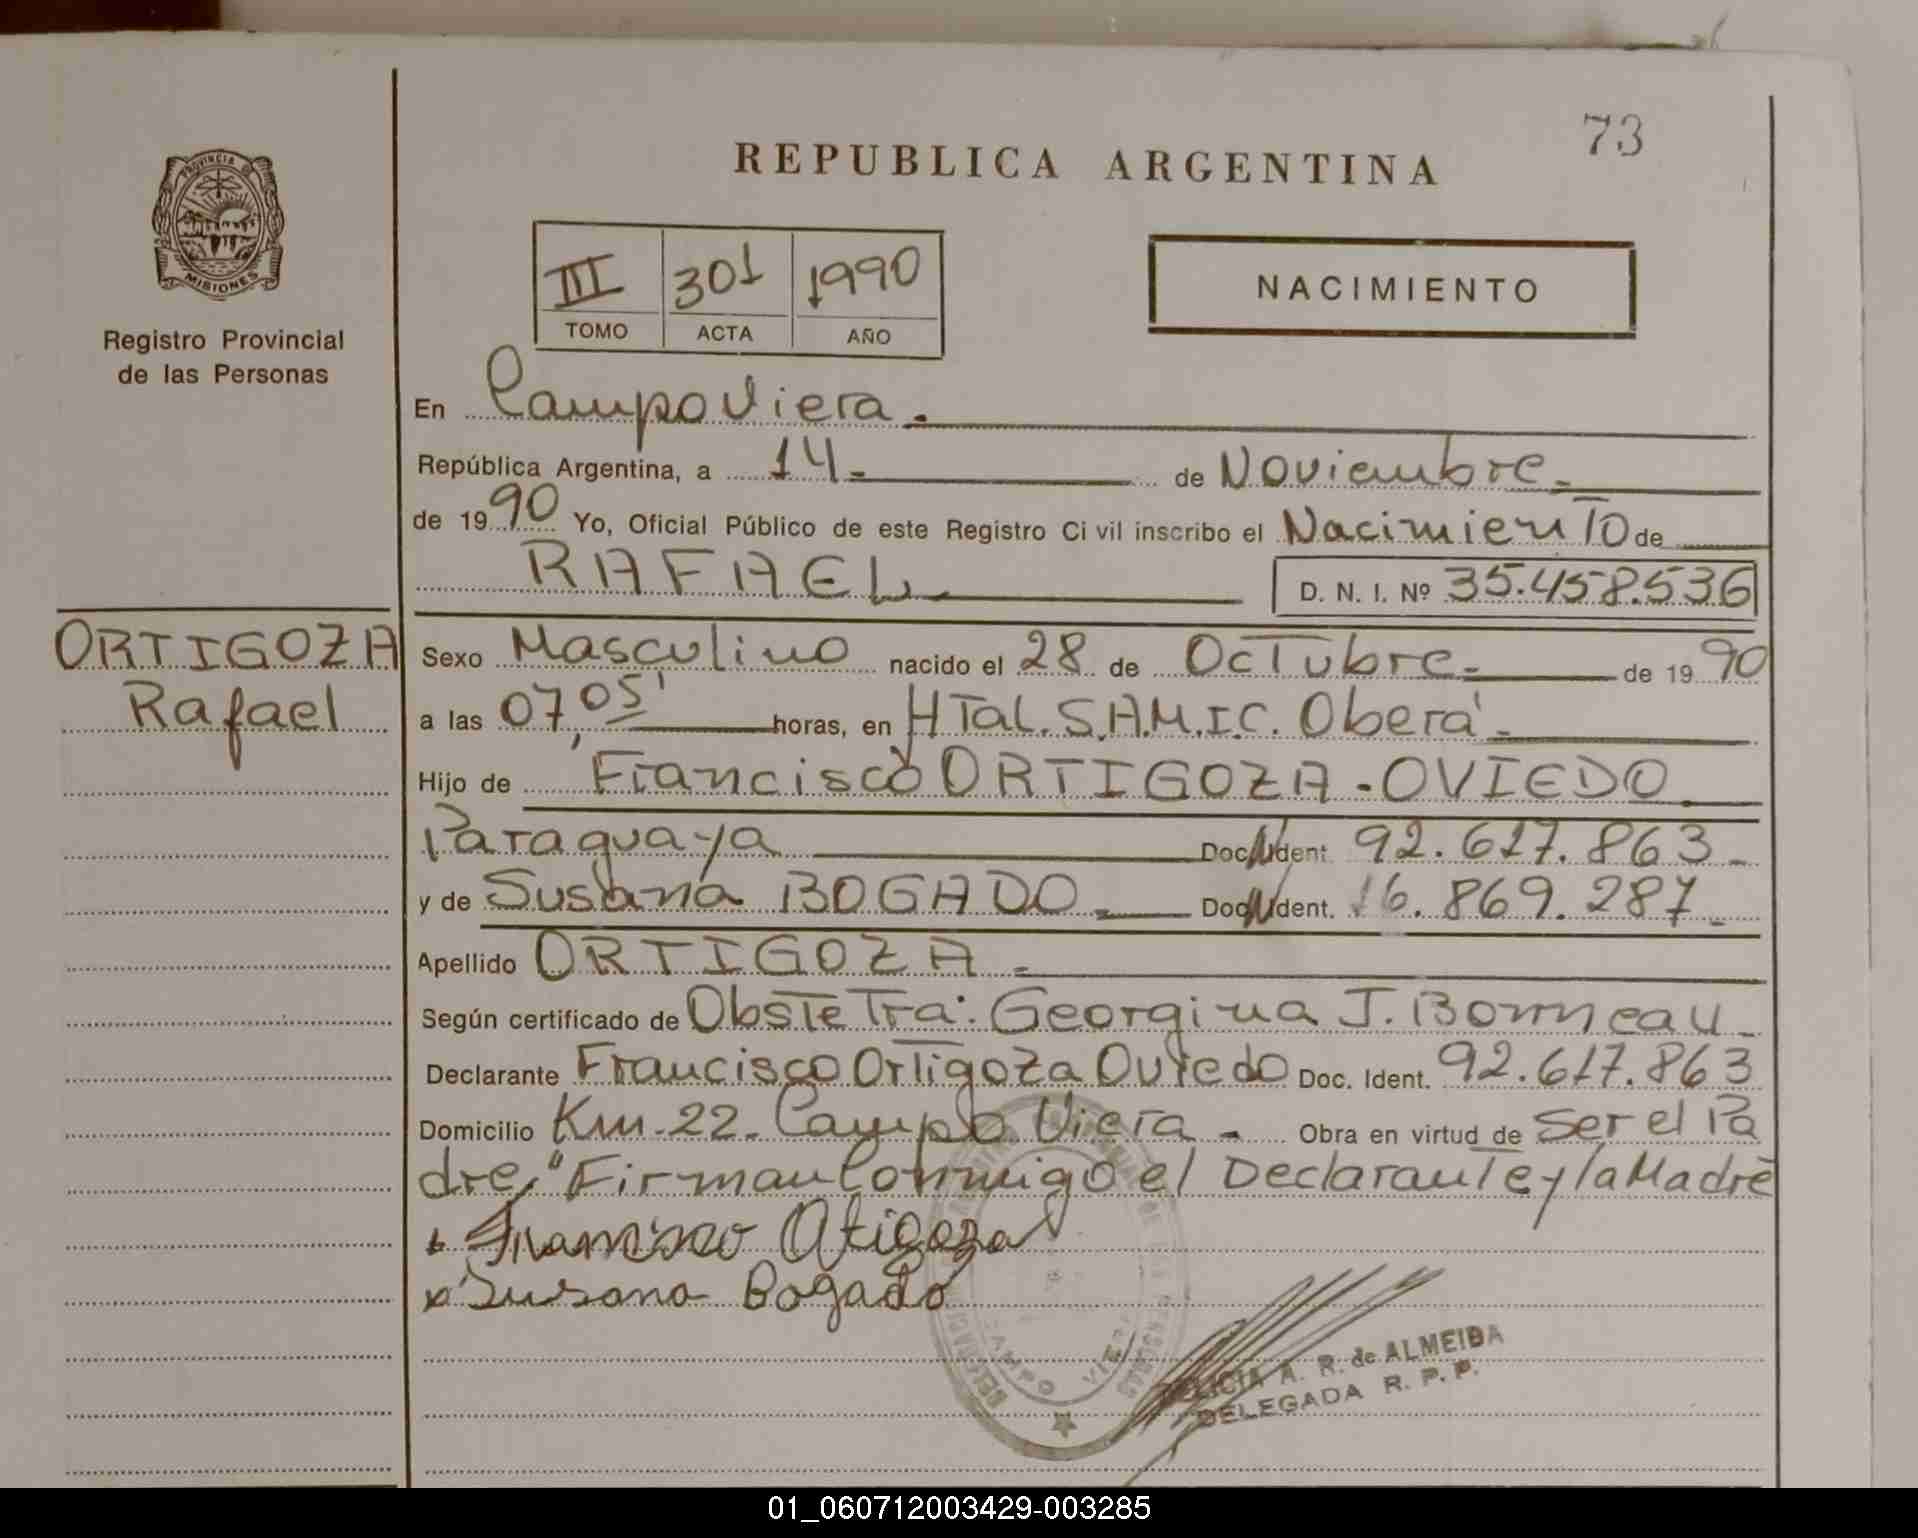 73
REPUBLICA ARGENTINA
PROVINCIA DE
MISIONES
Registro Provincial
de las Personas
III 301 1990
TOMO ACTA AÑO
NACIMIENTO
En Campo Viera.
República Argentina, a 14 - de Noviembre.
de 1990 Yo, Oficial Público de este Registro Ci vil inscribo el Nacimiento de
RAFAEL
D. N. I. Nº 35.458.536
ORTIGOZA
Rafael
Sexo Masculino nacido el 28 de Octubre - de 1990
a las 07,05' horas, en HTal. S.A.M.I.C. Oberá -
Hijo de Francisco ORTIGOZA - OVIEDO
Paraguaya Doc. Ident. 92.617.863 -
y de Susana BOGADO - Doc. Ident. 16.869.287 -
Apellido ORTIGOZA -
Según certificado de Obstetra: Georgina J. -
Declarante Francisco Ortigoza Oviedo Doc. Ident. 92.617.863
Domicilio Km. 22 - Campo Viera - Obra en virtud de Ser el Pa
dre, "Firman Conmigo el Declarante y la Madre
Francisco Otigoza
Susana Bogado
CAMPO VIERA
A. R. de ALMEIDA
DELEGADA R. P. P.
01_060712003429-003285